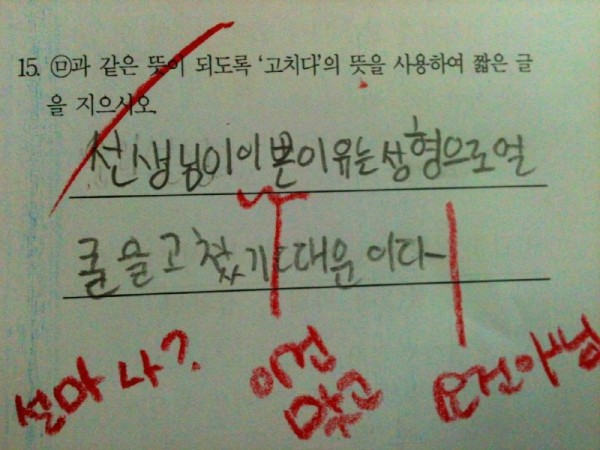 15. ㉤과 같은 뜻이 되도록 '고치다'의 뜻을 사용하여 짧은 글
을 지으시오.
선생님이 이쁜이유는 성형으로 얼
굴을 고쳤기 때문이다~
설마 나?
이건
맞고
요건아님